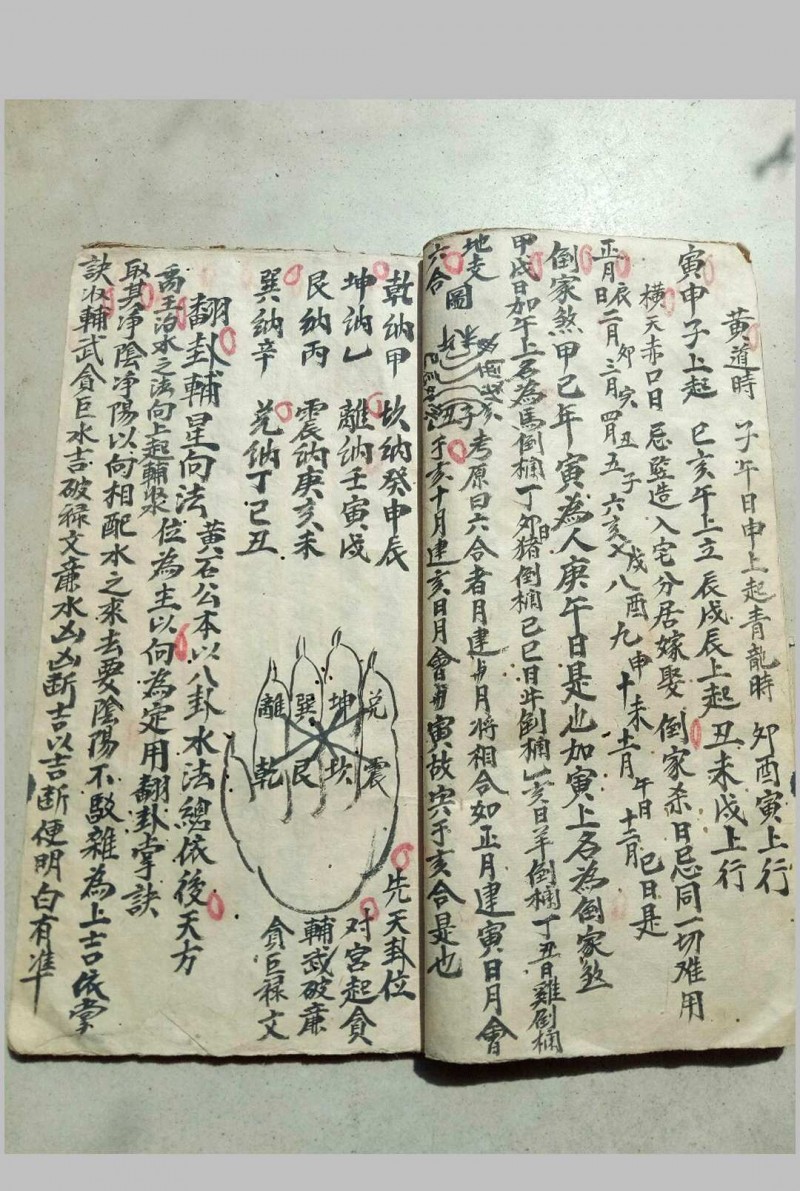 黄道時 子午日申上起青龍時 卯酉寅上行
寅申子上起 巳亥午上立 辰戌辰上起 丑未戌上行
橫天赤口日 忌監造入宅分居嫁娶 倒家杀日忌同一切难用
正月辰日 二月卯 三月寅 四月丑 五子 六亥 七戌 八酉 九申 十未 十一月午日 十二月巳日是
倒家煞甲己年寅為人庚午日是也加寅上名為倒家煞
甲戌日加午上名為馬倒欄丁卯日猪倒欄己巳日牛倒欄 亥日羊倒欄丁丑日雞倒欄
地支 圖 考原曰六合者月建与月将相合如正月建寅日月會
六合 于亥十月建亥日月會与寅故寅于亥合是也
乾纳甲 坎纳癸申辰
坤讷乙 離讷壬寅戌
艮纳丙 震讷庚亥未
巽纳辛 兑纳丁巳丑
兑 坤 巽 離
震 坎 艮 乾
先天卦位
对宫起貪
輔武破廉
貪巨禄文
翻卦輔星向法 黄石公本以八卦水法總依後天方
禹王治水之法向上起輔 位為主以向為定用翻卦掌訣
取其净陰净陽以向相配水之来去要陰陽不駁雜為上吉依掌
訣以輔武貪巨水吉破禄文廉水凶凶断吉以吉断便明白有准